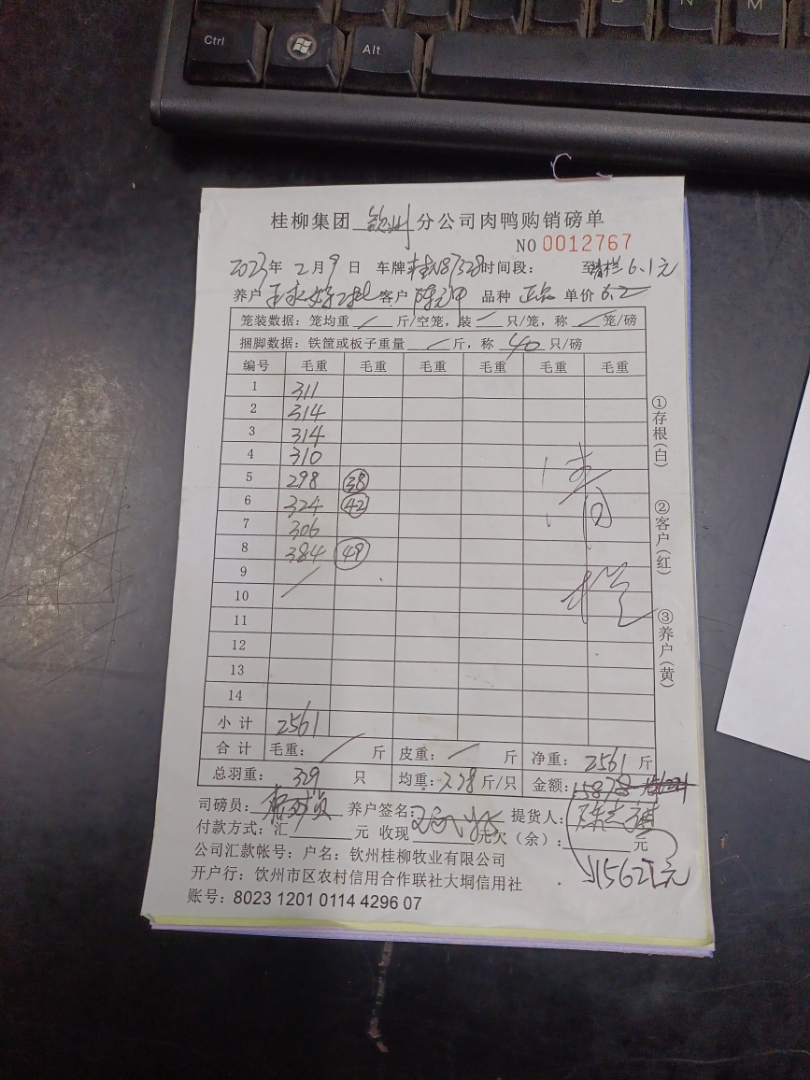 Ctrl
Alt
N
M
桂柳集团 钦州 分公司肉鸭购销磅单
NO 0012767
2023年 2月 9 日 车牌 桂N87328 时间段: 6.1元
养户 客户 品种 正品 单价 6.2
笼装数据: 笼均重 / 斤/空笼, 装 / 只/笼, 称 / 笼/磅
捆脚数据: 铁筐或板子重量 / 斤, 称 40 只/磅
编号 毛重 毛重 毛重 毛重 毛重 毛重
1 311
2 314
3 314
4 310
5 298 38
6 324 42
7 306
8 384 49
9
10
11
12
13
14
小 计 2561
合 计 毛重: / 斤 皮重: / 斤 净重: 2561 斤
总羽重: 329 只 均重: 7.78 斤/只 金额: 15878
司磅员: 养户签名: 提货人:
付款方式: 汇 元 收现 元欠(余): 元
公司汇款帐号: 户名: 钦州桂柳牧业有限公司
15621元
开户行: 钦州市区农村信用合作联社大垌信用社
账号: 8023 1201 0114 4296 07
①存根(白)
②客户(红)
③养户(黄)